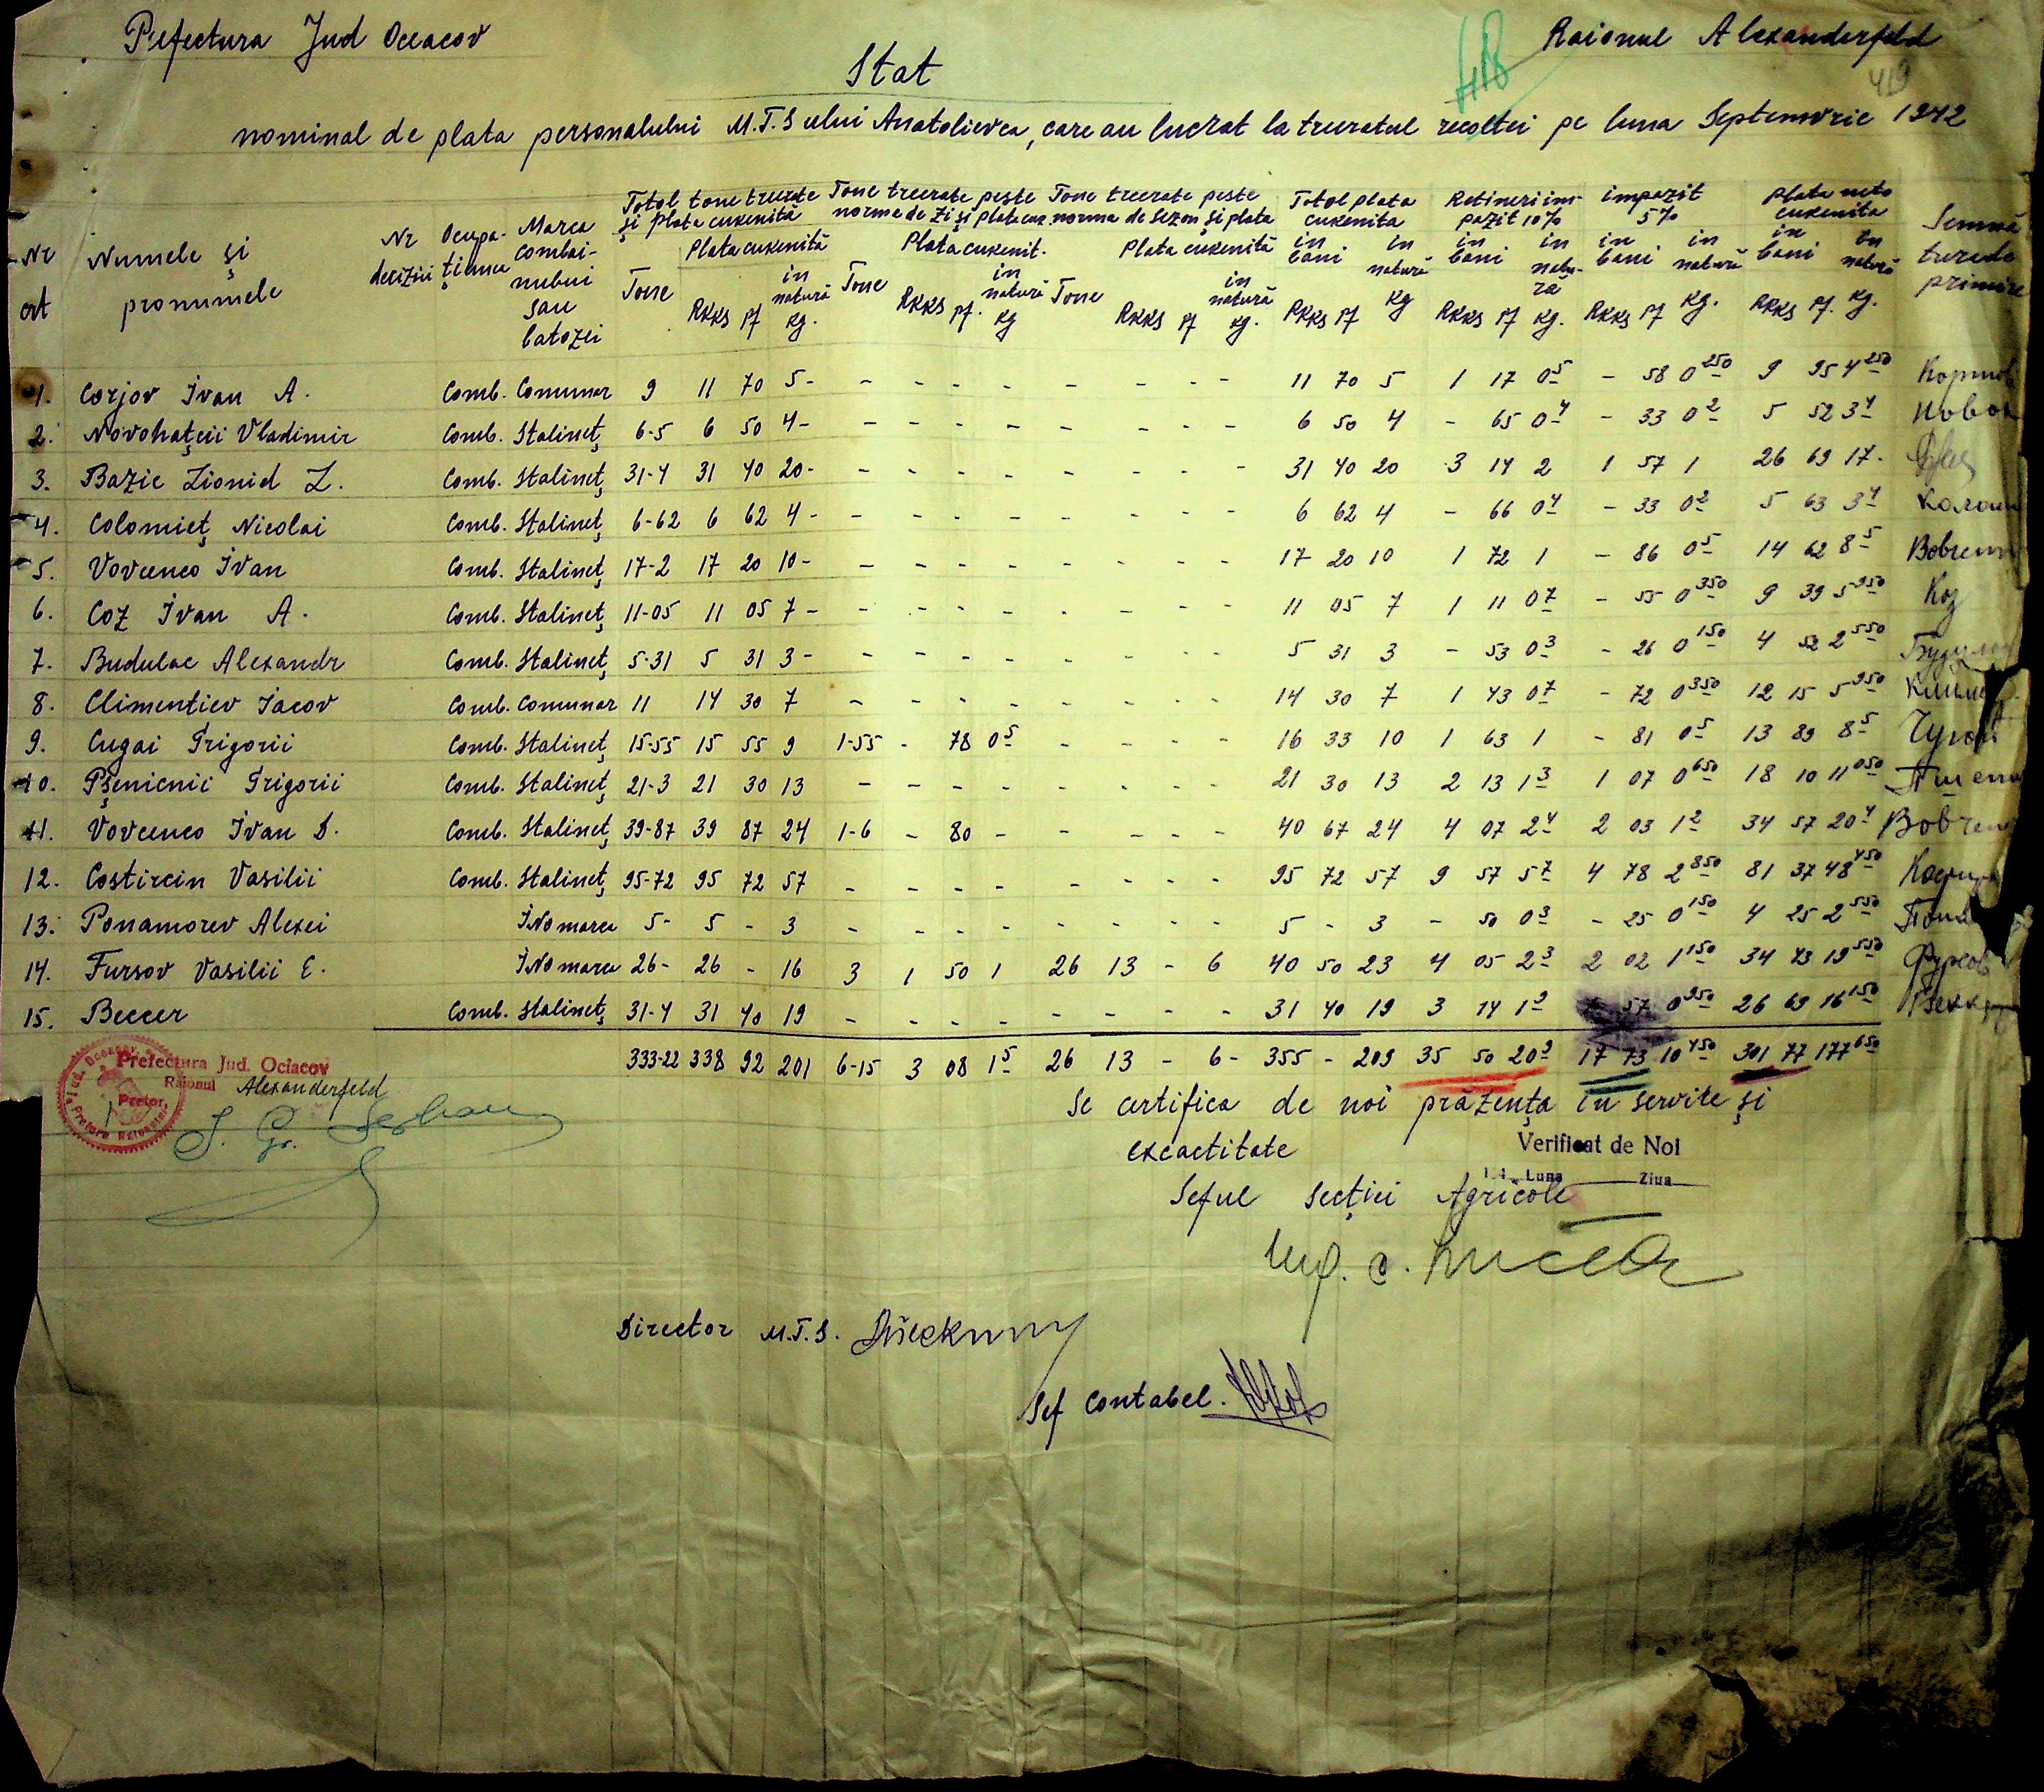 Prefectura Jud Oceacov
Raionul Alexanderfeld
418
419
Stat
nominal de plata personalului M.T.S ului Anatolievca, care au lucrat la treeratul recoltei pe luna Septemvrie 1942
Nr crt
Numele și pronumele
Nr deciziei
Ocupațiunea
Marca combainului sau batozei
Totol tone treerate și plata cuvenită
Tone
Plata cuvenită
RKKS pf
in natură kg.
Tone treerate peste norme de zi și plata cuv.
Tone
Plata cuvenit.
RKKS pf.
in natură kg
Tone treerate peste norma de sezon și plata
Tone
Plata cuvenită
RKKS pf
in natură kg.
Totol plata cuvenita
in bani RKKS pf
in natură Kg
Retineri impozit 10%
in bani RKKS pf
in natura kg.
impozit 5%
in bani RKKS pf
in natură Kg.
plata neto cuvenita
in bani RKKS pf.
in natură kg.
Semnăturade primire
1. Corjov Ivan A. Comb. Comunar 9 11 70 5 - - - - - - - - - 11 70 5 1 17 0 5 - 58 0 250 9 95 4 250
2. Novohațcii Vladimir Comb. Stalineț 6-5 6 50 4 - - - - - - - - - 6 50 4 - 65 0 4 - 33 0 2 5 52 3 4
3. Bazic Lionid L. Comb. Stalineț 31-4 31 40 20 - - - - - - - - - 31 40 20 3 14 2 1 57 1 26 69 17
4. Colomieț Nicolai Comb. Stalineț 6-62 6 62 4 - - - - - - - - - 6 62 4 - 66 0 4 - 33 0 2 5 63 3 4
5. Vovcenco Ivan Comb. Stalineț 17-2 17 20 10 - - - - - - - - - 17 20 10 1 72 1 - 86 0 5 14 62 8 5
6. Coz Ivan A. Comb. Stalineț 11-05 11 05 7 - - - - - - - - - 11 05 7 1 11 0 7 - 55 0 350 9 39 5 950 Коз
7. Budulac Alexandr Comb. Stalineț 5-31 5 31 3 - - - - - - - - - 5 31 3 - 53 0 3 - 26 0 150 4 52 2 550
8. Climentiev Iacov Comb. Comunar 11 14 30 7 - - - - - - - - 14 30 7 1 43 0 7 - 72 0 350 12 15 5 950
9. Cugai Grigorii Comb. Stalineț 15-55 15 55 9 1-55 - 78 0 5 - - - - 16 33 10 1 63 1 - 81 0 5 13 89 8 5
10. Pșenicnii Grigorii Comb. Stalineț 21-3 21 30 13 - - - - - - - - 21 30 13 2 13 1 3 1 07 0 650 18 10 11 050
11. Vovcenco Ivan D. Comb. Stalineț 39-87 39 87 24 1-6 - 80 - - - - - 40 67 24 4 07 2 4 2 03 1 2 34 57 20 4
12. Costircin Vasilii Comb. Stalineț 95-72 95 72 57 - - - - - - - - 95 72 57 9 57 5 7 4 78 2 850 81 37 48 450
13. Ponamorev Alexei INo marca 5- 5 - 3 - - - - - - - - 5 - 3 - 50 0 3 - 25 0 150 4 25 2 550
14. Fursov Vasilii E. INo marca 26- 26 - 16 3 1 50 1 26 13 - 6 40 50 23 4 05 2 3 2 02 1 150 34 43 19 550
15. Beccer Comb. Stalineț 31-4 31 40 19 - - - - - - - - 31 40 19 3 14 1 9 57 0 950 26 69 16 150
333-22 338 92 201 6-15 3 08 1 5 26 13 - 6 - 355 - 209 35 50 20 9 17 73 10 450 301 77 177 650
Prefectura Jud. Ociacov
Raionul Alexanderfeld
Pretor,
Se certifica de noi prăzența in servite și
excactitate
Verificat de Noi
Luna Ziua
Seful secției Agricole
Director M.T.S.
Sef contabel.